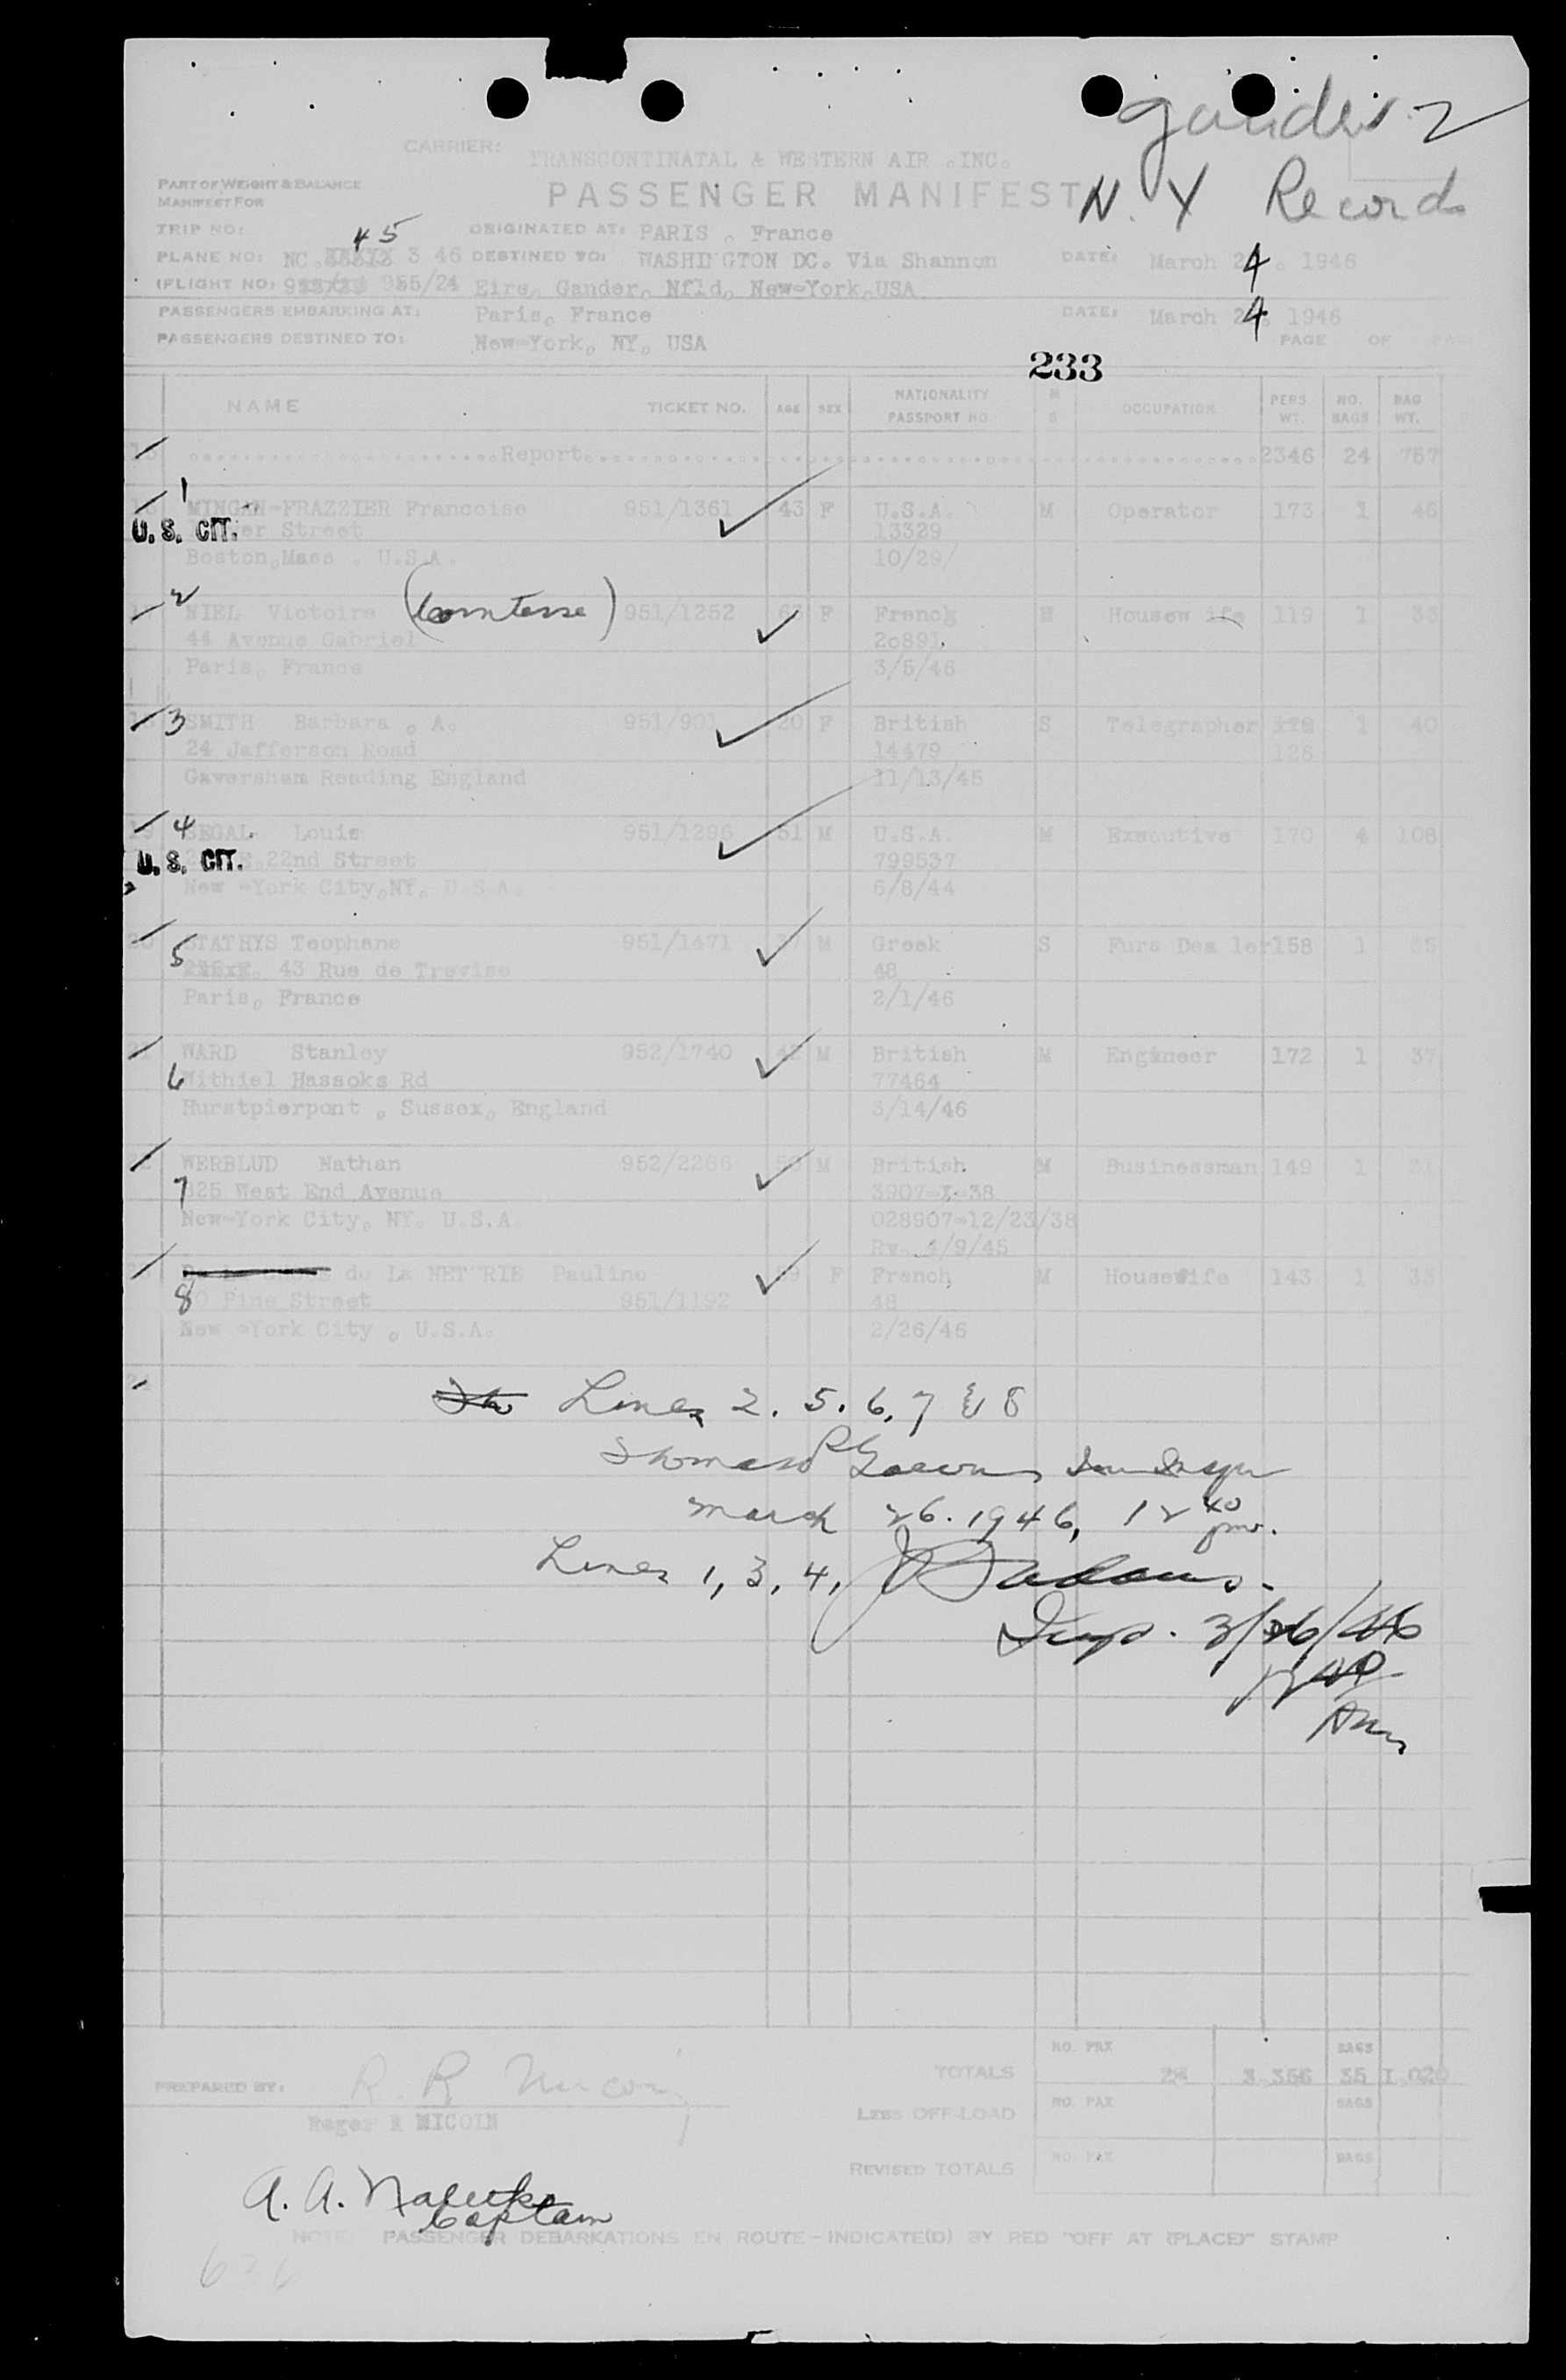 gander 2
N. Y Records
CARRIER: TRANSCONTINATAL & WESTERN AIR .INC.
PART OF WEIGHT & BALANCE
MANIFEST FOR
PASSENGER MANIFEST
TRIP NO: ORIGINATED AT: PARIS . France
45
PLANE NO: NC. 3 46 DESTINED TO: WASHINGTON DC. Via Shannon DATE: March 24. 1946
(FLIGHT NO: 955/24 Eire. Gander. Nfld. New-York.USA
PASSENGERS EMBARKING AT: Paris. France DATE: March 24. 1946
PASSENGERS DESTINED TO: New-York. NY. USA PAGE OF
233
NAME TICKET NO. AGE SEX NATIONALITY PASSPORT NO M S OCCUPATION PERS WT. NO. BAGS BAG WT.
Report 2346 24 757
1 MINGAN-FRAZZIER Francoise 951/1361 43 F U.S.A. M Operator 173 1 46
U. S. CIT. Street 13329
Boston.Mass . U.S.A. 10/29/
2 NIEL Victoire (Comtesse) 951/1252 63 F French Housewife 119 1 33
44 Avenue Gabriel 20891
Paris. France 3/5/46
3 SMITH Barbara . A. 951/901 20 F British S Telegrapher 1 40
24 Jafferson Road 14479 126
Caversham Reading England 11/13/45
19 4 SEGAL Louis 951/1296 51 M U.S.A. M Executive 170 4 108
U. S. CIT. 22nd Street 799537
New -York City.NY. U.S.A. 6/8/44
20 5 STATHYS Teophane 951/1471 37 M Greek S Furs Dealer 158 1 35
43 Rue de Trevise 48
Paris. France 2/1/46
21 6 WARD Stanley 952/1740 42 M British M Engineer 172 1 37
Withiel Hassoks Rd 77464
Hurstpierpont . Sussex. England 3/14/46
22 7 WERBLUD Nathan 952/2266 M British M Businessman 149 1 31
325 West End Avenue 3907-I-38
New-York City. NY. U.S.A. 028907-12/23/38
Rv. 4/9/45
8 de La NETRIE Pauline F French M Housewife 143 1 33
Pine Street 951/1192 48
New -York City . U.S.A. 2/26/46
Lines 2. 5. 6, 7 & 8
Thomas
March 26. 1946, 12 40 pm.
Lines 1, 3, 4, Adams.
Insp. 3/26/46
PREPARED BY:
Roger R MICOIN
TOTALS NO. PAX 3.366 BAGS 35 1.020
LESS OFF-LOAD NO. PAX BAGS
REVISED TOTALS NO. PAX BAGS
A. A.
Captain
NOTE: PASSENGER DEBARKATIONS EN ROUTE - INDICATE(D) BY RED "OFF AT (PLACE)" STAMP
636